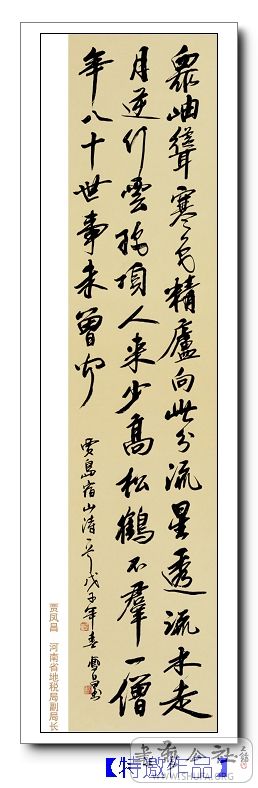 众岫耸寒色精廬向此分流星透流木走
月逆行雲絶頂人来少高松鶴不羣一僧
年八十世事未曾聞
賈島宿山清一首戊子年春
贾凤昌 河南省地税局副局长
【特邀作品】